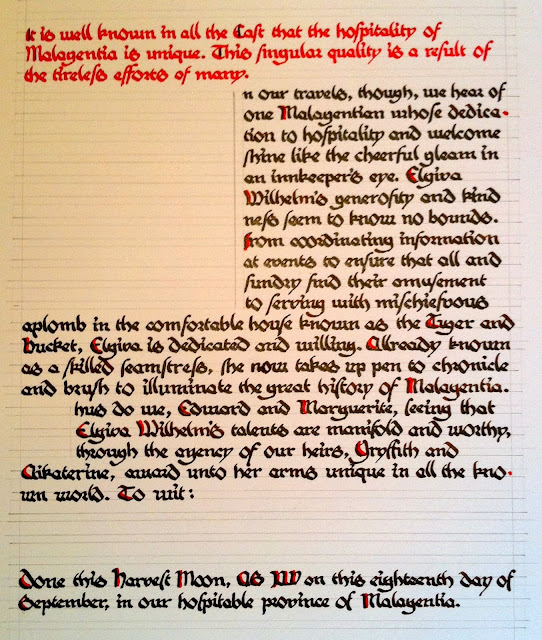 It is well known in all the East that the hospitality of
Malagentia is unique. This singular quality is a result of
the tireless efforts of many.
n our travels, though, we hear of
one Malagentian whose dedica·
tion to hospitality and welcome
shine like the cheerful gleam in
an innkeeper's eye. Elgiva
Wilhelm's generosity and kind
ness seem to know no bounds.
From coordinating information
at events to ensure that all and
sundry find their amusement
to serving with mischievous
aplomb in the comfortable house known as the Tyger and
Bucket, Elgiva is dedicated and willing. Already known
as a skilled seamstress, she now takes up pen to chronicle
and brush to illuminate the great history of Malagentia.
hus do we, Edward and Marguerite, seeing that
Elgiva Wilhelm's talents are manifold and worthy,
through the agency of our heirs, Gryffith and
Aikaterine, award unto her arms unique in all the kno·
wn world. To wit:
Done this Harvest Moon, AS XLV on this eighteenth day of
September, in our hospitable province of Malagentia.